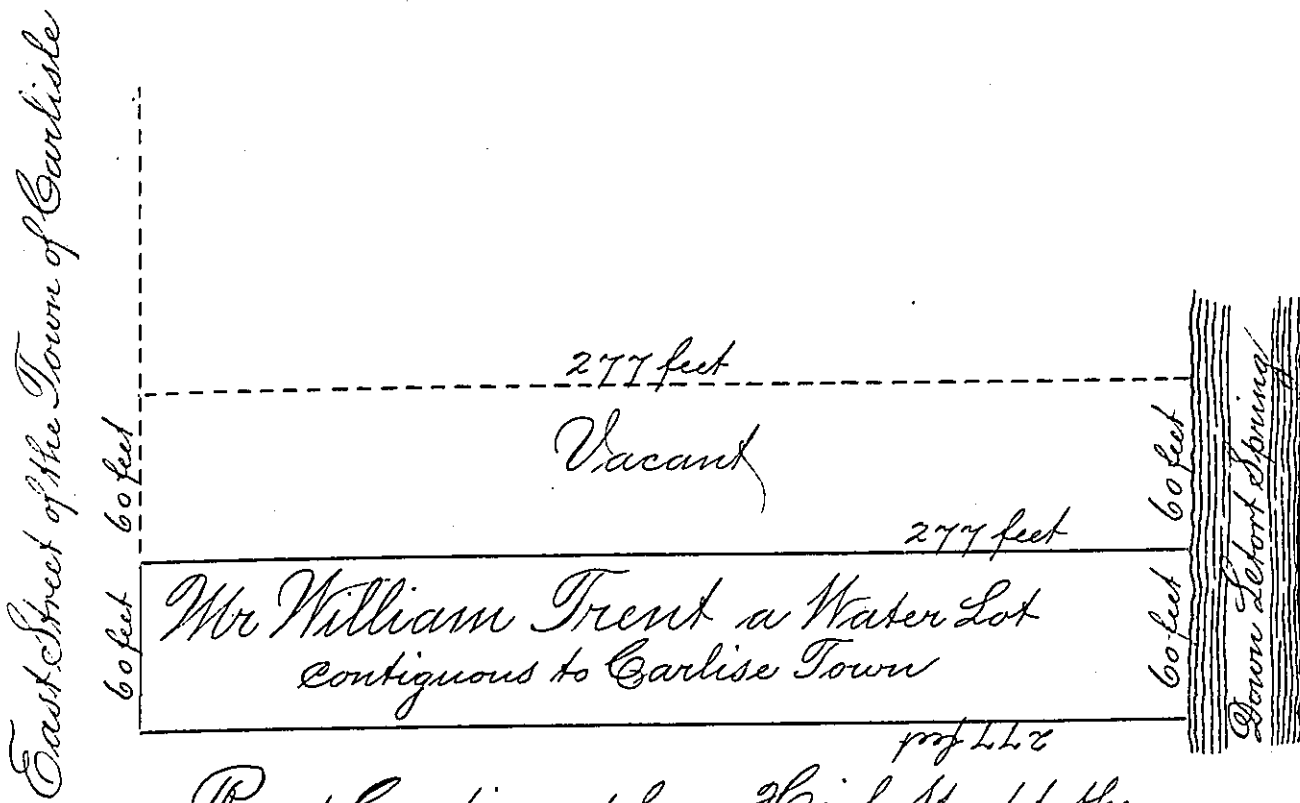 East Street of the Town of Carlisle
277 feet
60 feet
Vacant
60 feet
277 feet
60 feet
Mr William Trent a Water Lot
contiguous to Carlise Town
60 feet
277 feet
Down Letort Spring
High Street the